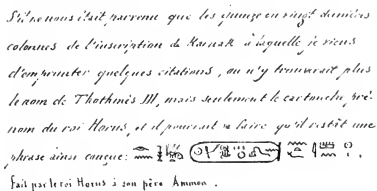 S'il ne nous était parvenu que les quinze ou vingt dernières
colonnes de l'inscription de Karnak à laquelle je viens
d'emprunter quelques citations, on n'y trouverait plus
le nom de Thothmès III, mais seulement le cartouche pré-
nom du roi Horus, et il pourrait se faire qu'il restât une
phrase ainsi conçue:
fait par le roi Horus à son père Ammon.